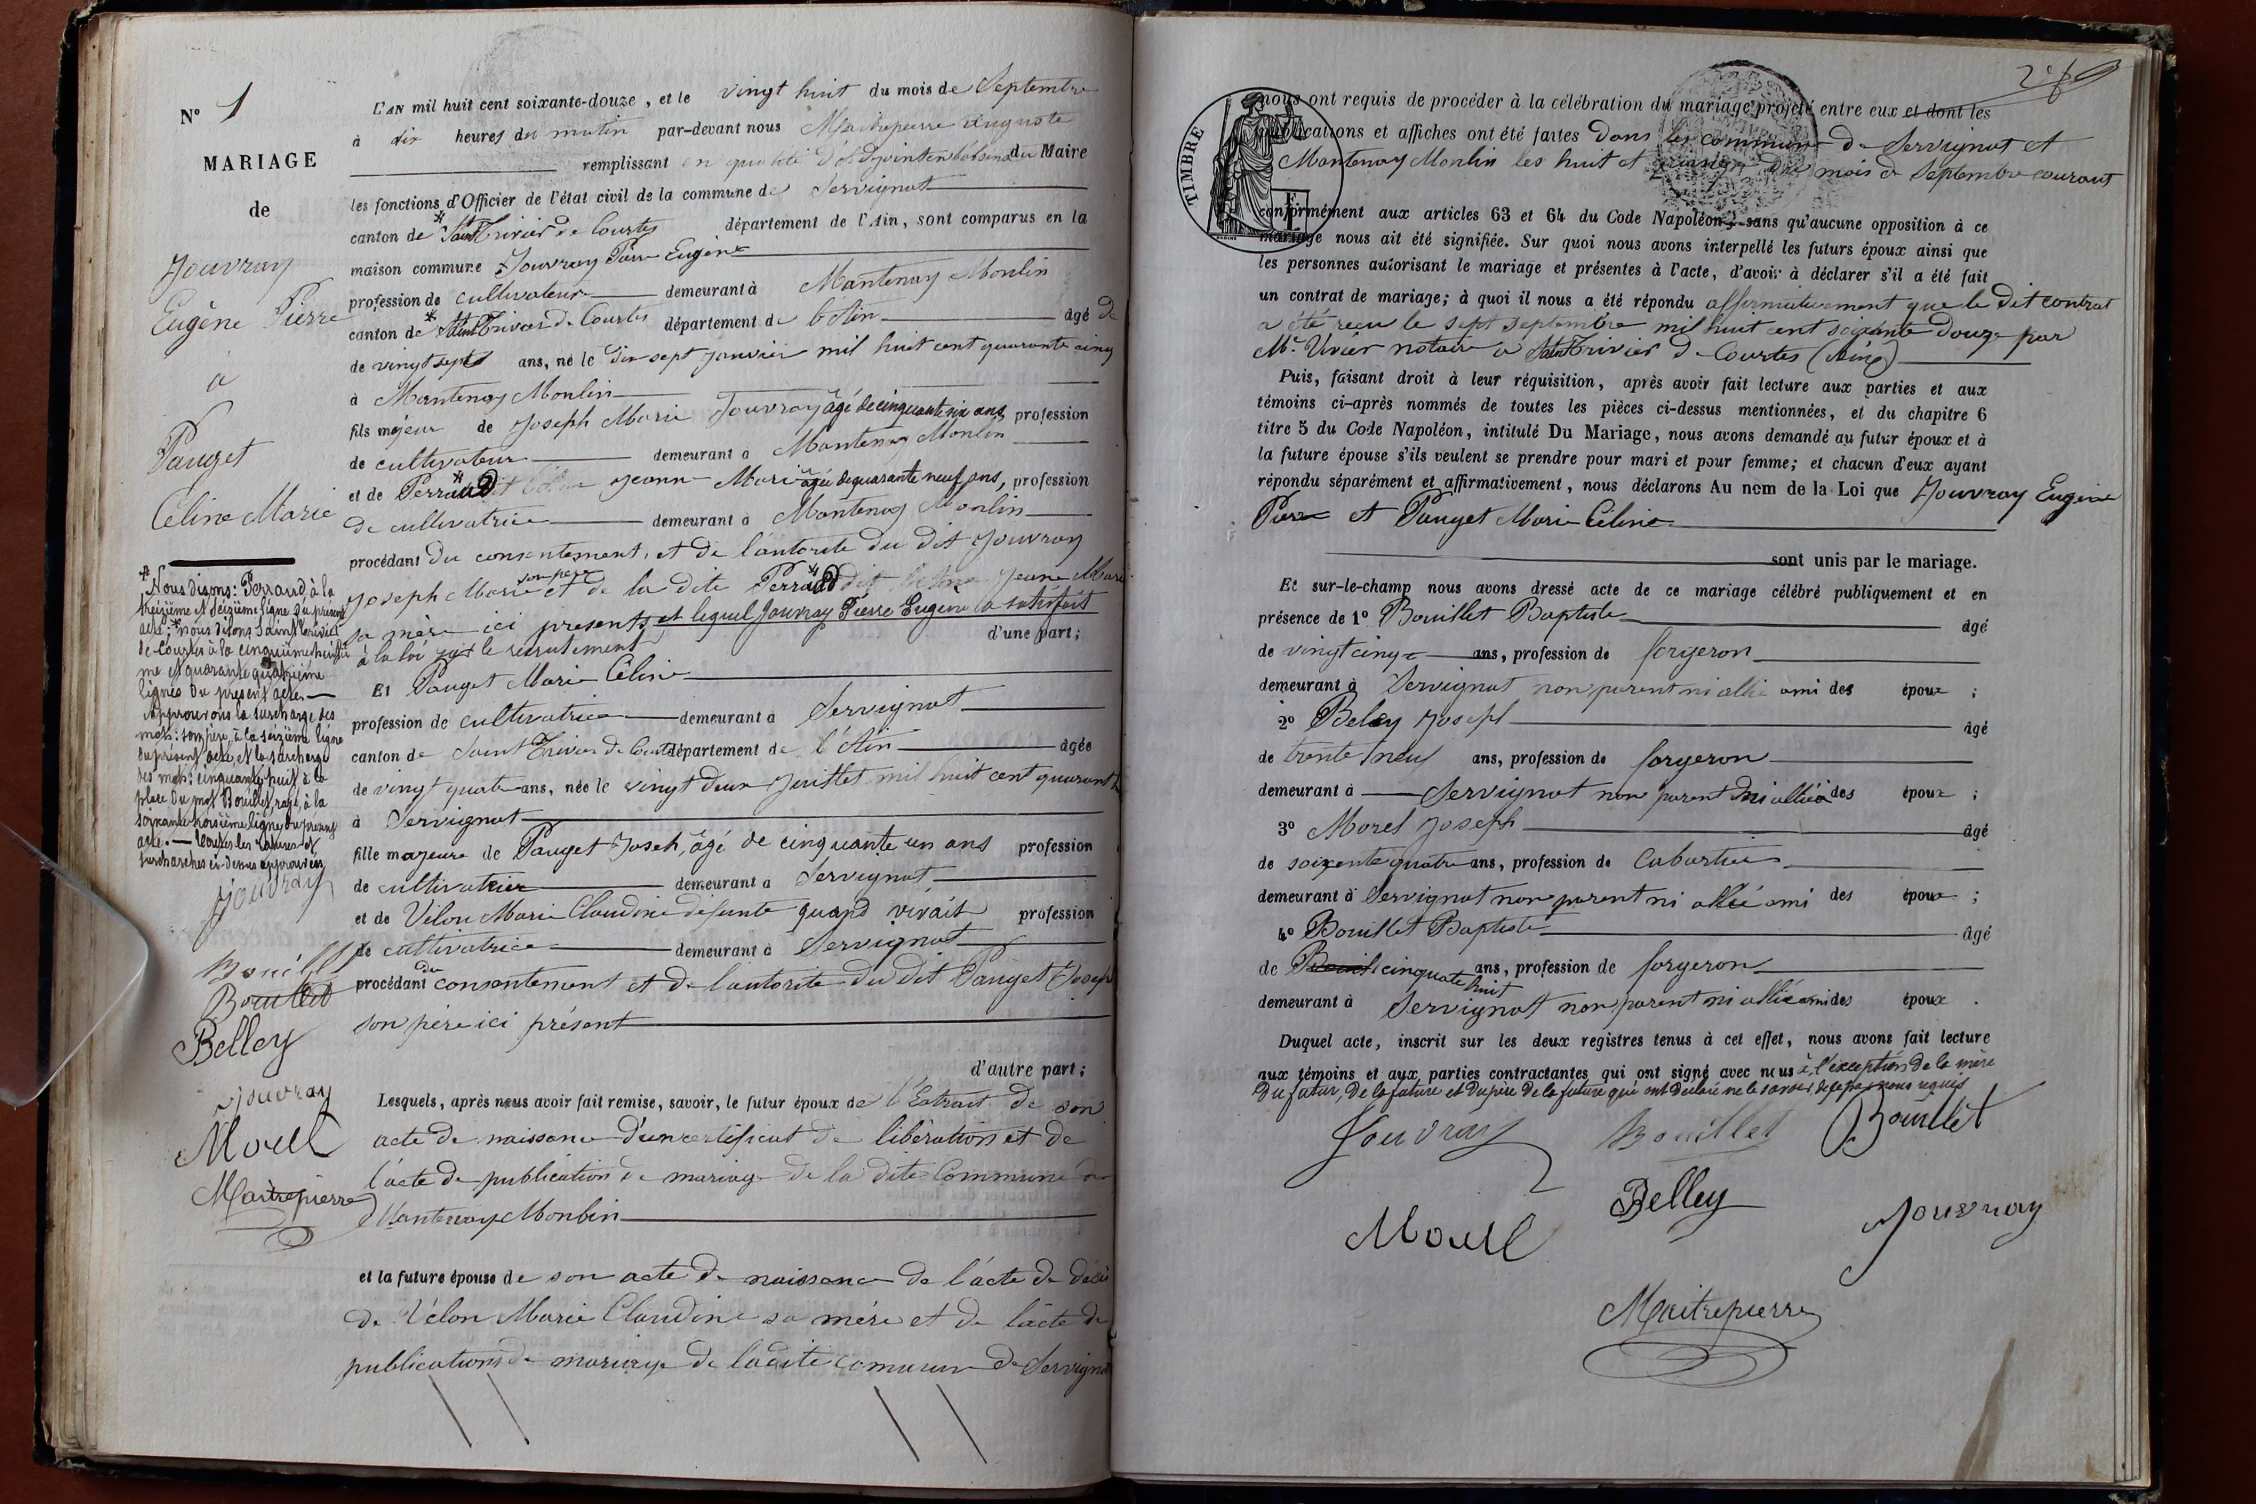 N° 1
MARIAGE
de
Jouvray
Eugène Pierre
à
Pauget
Céline Marie
L'AN mil huit cent soixante-douze, et le vingt huit du mois de Septembre
à dix heures du matin par-devant nous Maitrepierre Auguste
remplissant en qualité du Maire
les fonctions d'Officier de l'état civil de la commune de Servignat
canton de * Saint Trivier de Courtes département de l'Ain, sont comparus en la
maison commune Jouvray Pierre Eugène
profession de cultivateur demeurant à Mantenay Monlin
canton de * Saint Trivier de Courtes département de âgé de
de vingt sept ans, né le dix sept Janvier mil huit cent quarante cinq
à Mantenay Monlin
fils majeur de Joseph Marie Jouvray âgé de cinquante six ans, profession
de cultivateur demeurant à Mantenay Monlin
et de * Perraud Jeanne Marie âgée de quarante neuf ans, profession
de cultivatrice demeurant à Mantenay Monlin
procédant du consentement et de l'autorité du dit Jouvray
Joseph Marie son père et de la dite * Perraud Jeanne Marie
sa mère ici présents et lequel Jouvray Pierre Eugène a satisfait
à la loi sur le recrutement d'une part;
Et Pauget Marie Céline
profession de cultivatrice demeurant à Servignat
canton de Saint Trivier de Courtes département de l'Ain âgée
de vingt quatre ans, née le vingt deux Juillet mil huit cent quarante
à Servignat
fille majeure de Pauget Joseh, âgé de cinquante un ans profession
de cultivateur demeurant à Servignat
et de Vilon Marie Claudine défunte quand vivait profession
de cultivatrice demeurant à Servignat
procédant du consentement et de l'autorité du dit Pauget Joseph
son père ici présent
d'autre part;
Lesquels, après nous avoir fait remise, savoir, le futur époux de l'Extrait de son
acte de naissance d'un certificat de libération et de
l'acte de publication de mariage de la dite Commune de
Mantenay Monlin
et la future épouse de son acte de naissance de l'acte de décès
de Vélon Marie Claudine sa mère et de l'acte de
publications de mariage de la dite commune de Servignat
* Nous disons: Perraud, à la
treizième et seizième ligne du présent
acte; * nous disons Saint Trivier
de Courtes à la cinquième, huitiè
me et quarante quatrième
lignes du présent acte.
Approuvons la surcharge des
mots: son père, à la seizième ligne
du présent acte et la surcharge
des mots: cinquante huit à la
place du mot Bouillet, rayé, à la
soixante troisième ligne du présent
acte. — Toutes les ratures et
surcharges ci-dessus approuvées
Jouvray
Bouillet
Bouillet
Belley
Jouvray
Morel
Maitrepierre
TIMBRE
nous ont requis de procéder à la célébration du mariage projeté entre eux et dont les
publications et affiches ont été faites dans les communes de Servignat et
Mantenay Monlin les huit et quinze du mois de Septembre courant
conformément aux articles 63 et 64 du Code Napoléon, sans qu'aucune opposition à ce
mariage nous ait été signifiée. Sur quoi nous avons interpellé les futurs époux ainsi que
les personnes autorisant le mariage et présentes à l'acte, d'avoir à déclarer s'il a été fait
un contrat de mariage; à quoi il nous a été répondu affirmativement que le dit contrat
a été reçu le sept septembre mil huit cent soixante douze par
Me Uvier notaire à Saint Trivier de Courtes (Ain)
Puis, faisant droit à leur réquisition, après avoir fait lecture aux parties et aux
témoins ci-après nommés de toutes les pièces ci-dessus mentionnées, et du chapitre 6
titre 5 du Code Napoléon, intitulé Du Mariage, nous avons demandé au futur époux et à
la future épouse s'ils veulent se prendre pour mari et pour femme; et chacun d'eux ayant
répondu séparément et affirmativement, nous déclarons Au nom de la Loi que Jouvray Eugène
Pierre et Pauget Marie Céline
sont unis par le mariage.
Et sur-le-champ nous avons dressé acte de ce mariage célébré publiquement et en
présence de 1° Bouillet Baptiste âgé
de vingt cinq ans, profession de forgeron
demeurant à Servignat non parent ni allié ami des époux ;
2° Beley Joseph âgé
de trente neuf ans, profession de forgeron
demeurant à Servignat non parent ni allié des époux ;
3° Morel Joseph âgé
de soixente quatre ans, profession de cabartier
demeurant à Servignat non parent ni allié ami des époux ;
4° Bouillet Baptiste âgé
de cinquate huit ans, profession de forgeron
demeurant à Servignat non parent ni allié ami des époux .
Duquel acte, inscrit sur les deux registres tenus à cet effet, nous avons fait lecture
aux témoins et aux parties contractantes qui ont signé avec nous à l'exception de la mère
du futur, de la future et du père de la future qui ont déclaré ne le savoir de ce par nous requis
Jouvray Bouillet Bouillet
Morel Belley Jouvray
Maitrepierre